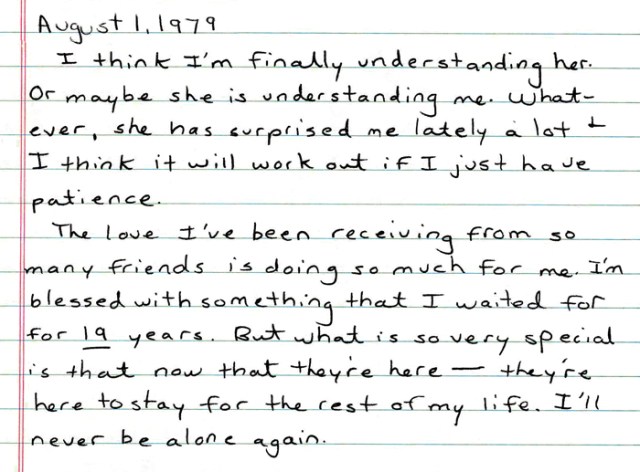 August 1, 1979
I think I'm finally understanding her.
Or maybe she is understanding me. What-
ever, she has surprised me lately a lot +
I think it will work out if I just have
patience.
The love I've been receiving from so
many friends is doing so much for me. I'm
blessed with something that I waited for
for 19 years. But what is so very special
is that now that they're here — they're
here to stay for the rest of my life. I'll
never be alone again.